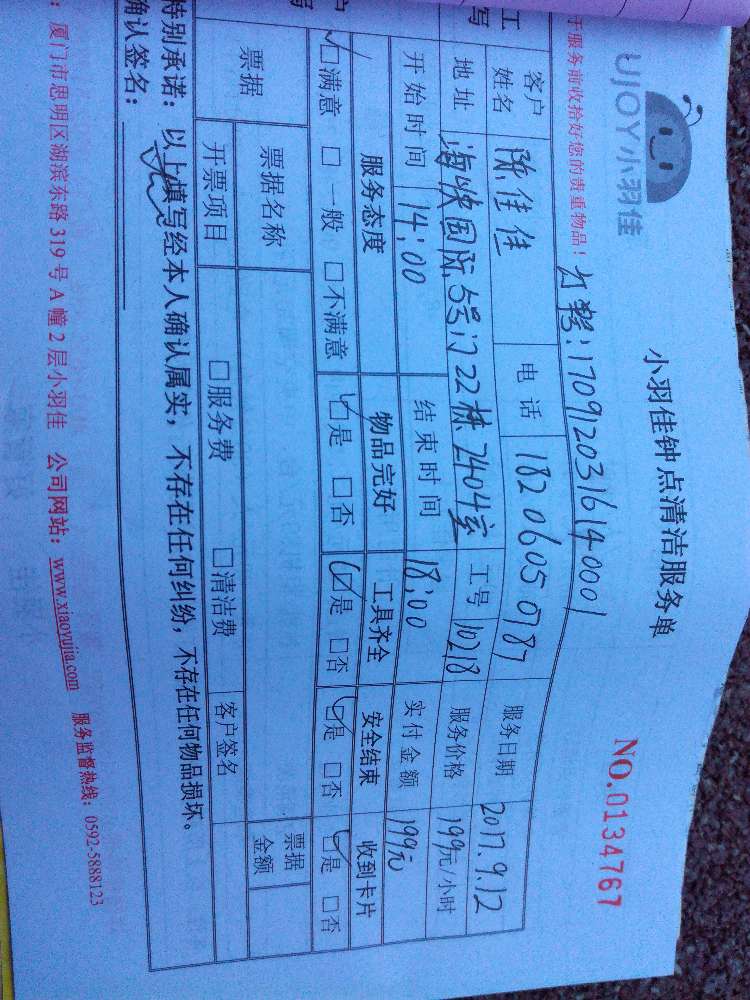 UJOY小羽佳
小羽佳钟点清洁服务单
NO.0134767
于服务前收拾好您的贵重物品!
1709120316140001
客户姓名 陈佳佳 电话 18206050787 服务日期 2017.9.12
地址 海峡国际 22栋2404室 工号 10218 服务价格 199元/小时
开始时间 14:00 结束时间 18:00 实付金额 199元
服务态度 物品完好 工具齐全 安全结束 收到卡片
☑满意 □一般 □不满意 ☑是 □否 ☑是 □否 ☑是 □否 ☑是 □否
票据 票据名称 票据金额
开票项目 □服务费 □清洁费 客户签名
特别承诺:以上填写经本人确认属实,不存在任何纠纷,不存在任何物品损坏。
确认签名:
:厦门市思明区湖滨东路319号A幢2层小羽佳 公司网站:www.xiaoyujia.com 服务监督热线:0592-5888123